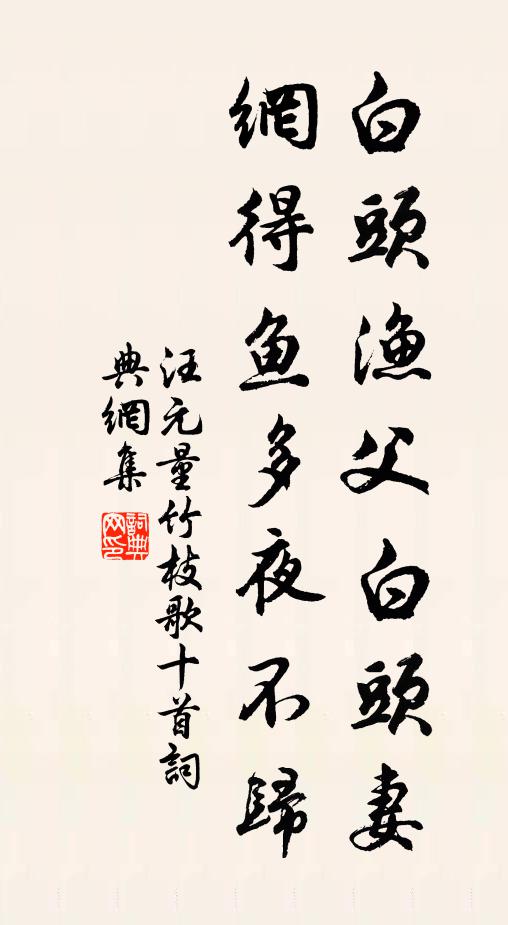 白頭漁父白頭妻
網得魚多夜不歸
汪元量竹枝歌十首詞
典網集
詞典網印